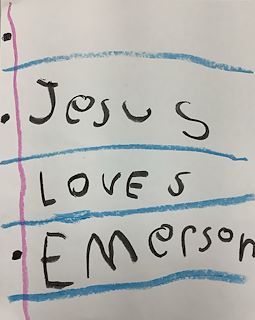 Jesus
LOVES
EMerson